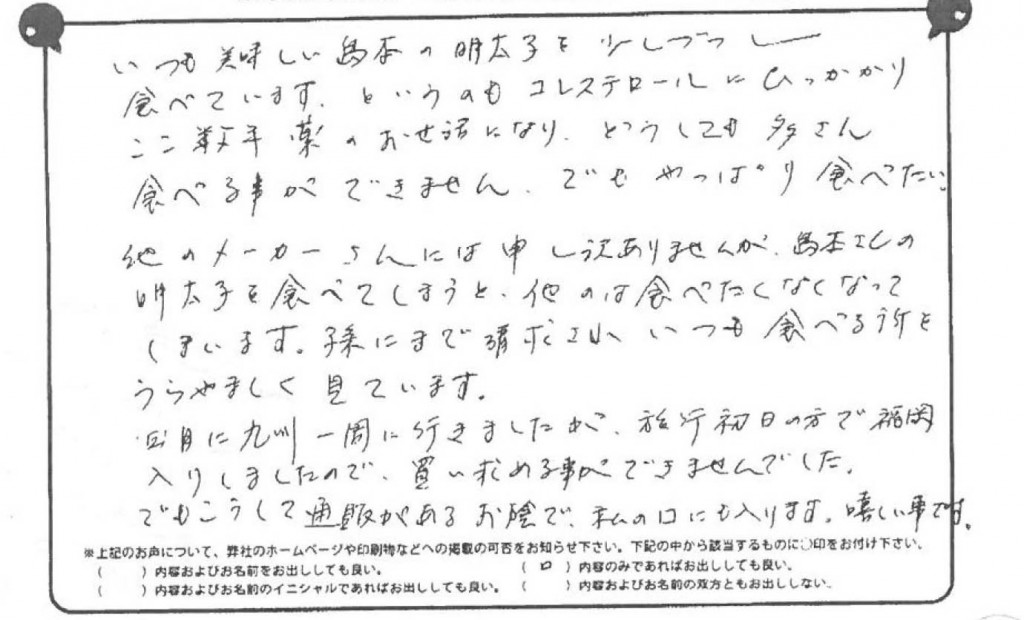 いつも美味しい島本の明太子を少しづつ
食べています。というのもコレステロールにひっかかり
ここ数年薬のお世話になり、どうしても多さん
食べる事ができません。でもやっぱり食べたい。
他のメーカーさんには申し訳ありませんが、島本さんの
明太子を食べてしまうと、他のは食べたくなくなって
しまいます。孫にまで請求され、いつも食べる所を
うらやましく見ています。
月に九州一周に行きましたが、旅行初日の方で福岡
入りしましたので、買い求める事ができませんでした。
でもこうして通販があるお陰で、私の口にも入ります。嬉しい事です。
※上記のお声について、弊社のホームページや印刷物などへの掲載の可否をお知らせ下さい。下記の中から該当するものに○印をお付け下さい。
( )内容およびお名前をお出ししても良い。 (ロ)内容のみであればお出ししても良い。
( )内容およびお名前のイニシャルであればお出ししても良い。 ( )内容およびお名前の双方ともお出ししない。